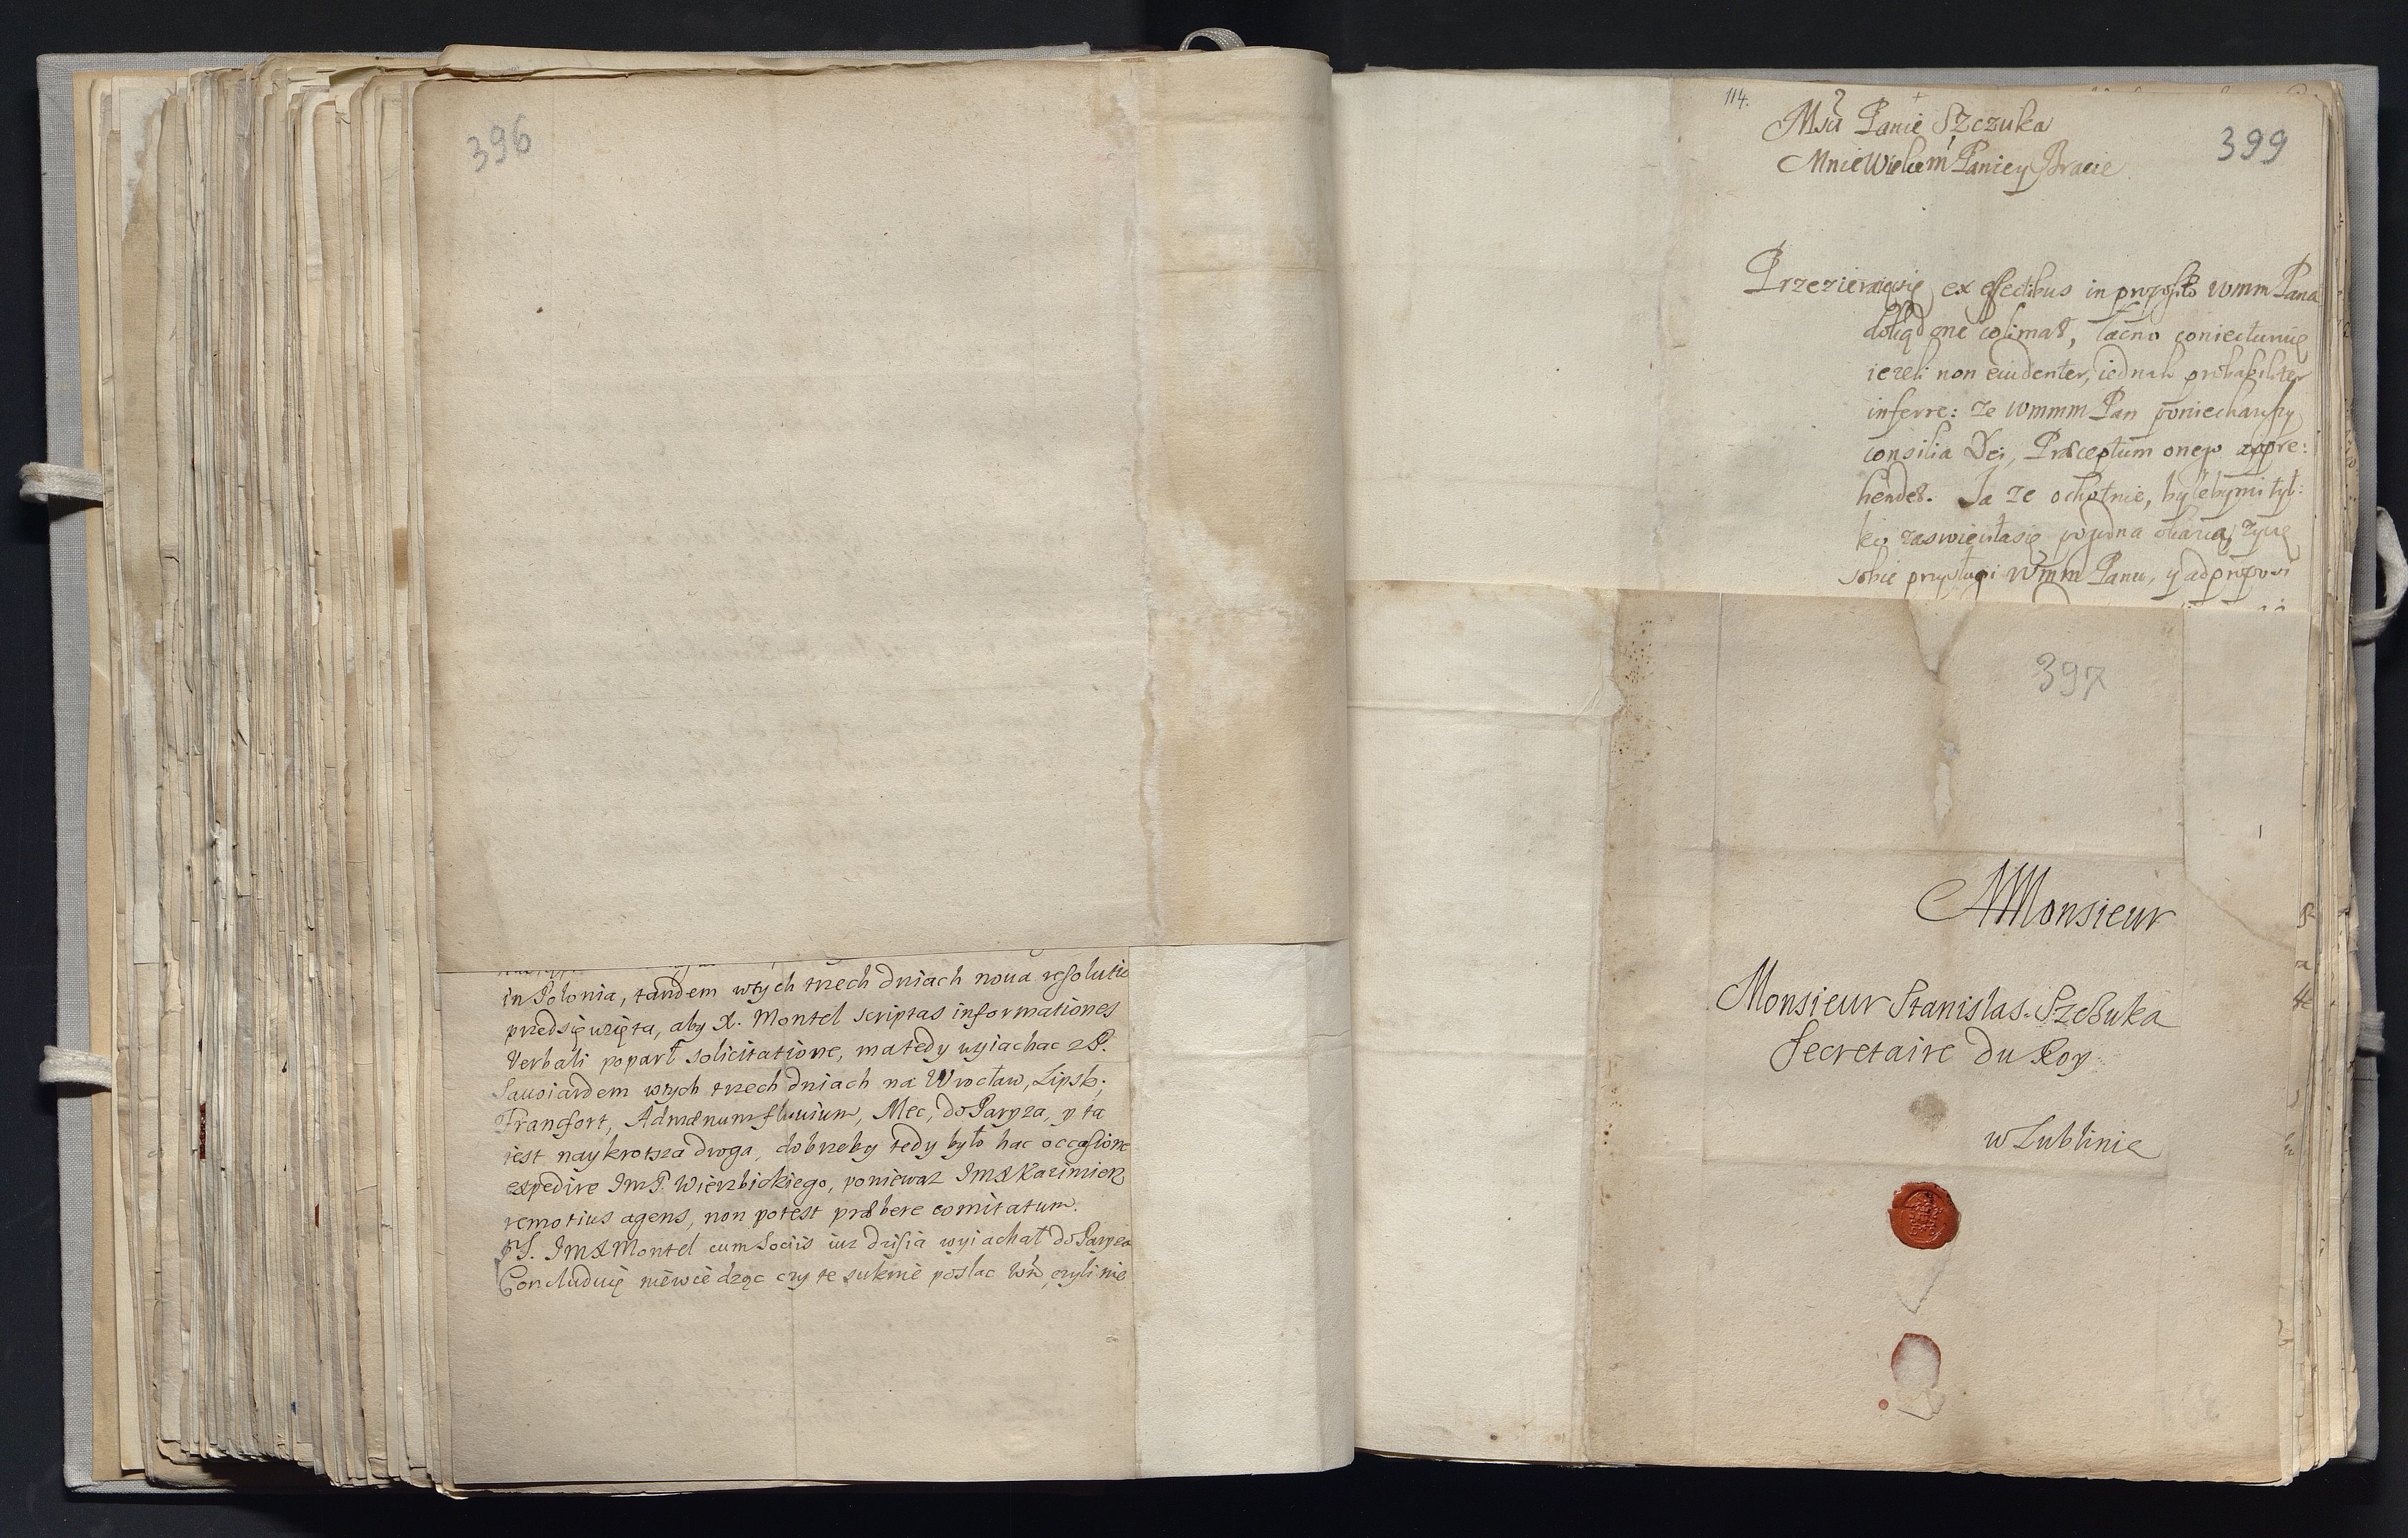 396
in Polonia, tandem wtych trzech dniach noua resolutio
przedsięwzięta, aby X. Montel scriptas informationes
Verbali poparł solicitatione, ma tedy wyiachac z P.
wtych trzech dniach na Wrocław, Lipsk,
Francfort, Ad mænum fluuium, Mec, do Paryza, y ta
iest naykrotsza droga, dobrzeby tedy było hac occasione
expedire ImP. Wierzbickiego, poniewaz ImX Kazimierz
remotius agens, non potest præbere comitatum.
PS. ImX Montel cum Sociis iuz dzisia wyiachał do Paryza
Concluduię niewiedząc czy te suknie posłac czyli nie
114.
399
Msci Panie Szczuka
Mnie Wielce m Panie y Bracie
ex effectibus in proposito Wmm Pana
dokąd one colimat, łacno coniecturuię
iezeli non euidenter, iednak probabiliter
inferre: ze Wmmm Pan poniechawszy
consilia Dei, Præceptum onego appre:
hendet. Ja ze ochotnie, byleby mi tyl:
ko okazia, zyczę
sobie przysługi Wmm Panu, y ad
397
A Monsieur
Monsieur Stanislas Szczuka
Secretaire Du Roy
w Lublinie